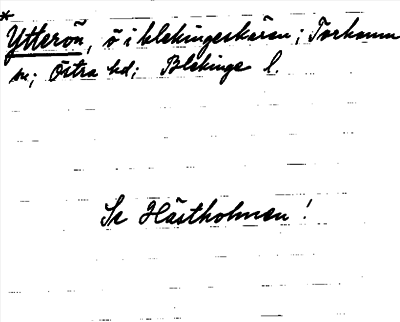 * Ytterön, ö i blekingeskären; Torhamn
sn; Östra hd; Blekinge l.
Se Hästholmen!